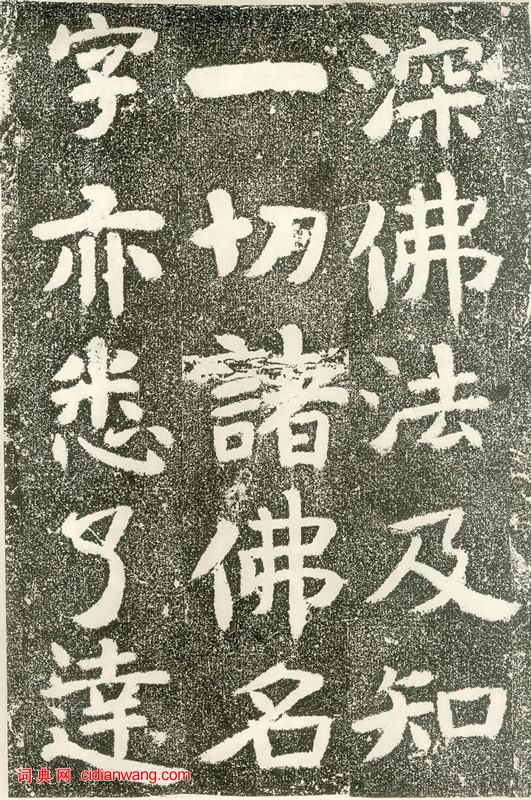 深佛法及知
一切諸佛名
字亦悉了達
词典网 cidianwang.com